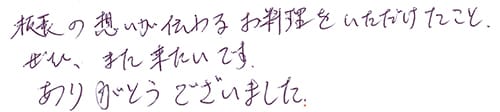 板長の想いが伝わるお料理をいただけたこと.
ぜひ、また来たいです.
ありがとうございました.